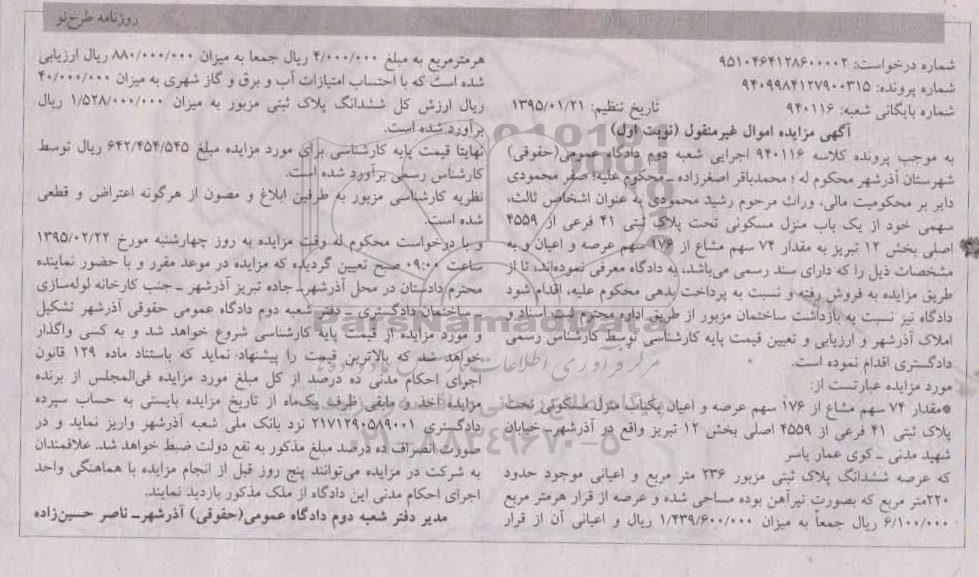 روزنامه طرح‌نو
شماره درخواست: ۹۵۱۰۴۶۴۱۲۸۶۰۰۰۰۲
شماره پرونده: ۹۴۰۹۹۸۴۱۲۷۹۰۰۳۱۵
شماره بایگانی شعبه: ۹۴۰۱۱۶ تاریخ تنظیم: ۱۳۹۵/۰۱/۲۱
آگهی مزایده اموال غیرمنقول (نوبت اول)
به موجب پرونده کلاسه ۹۴۰۱۱۶ اجرایی شعبه دوم دادگاه عمومی(حقوقی)
شهرستان آذرشهر محکوم له ؛ محمدباقر اصغرزاده ـ محکوم علیه؛ صفر محمودی
دایر بر محکومیت مالی، وراث مرحوم رشید محمودی به عنوان اشخاص ثالث،
سهمی خود از یک باب منزل مسکونی تحت پلاک ثبتی ۴۱ فرعی از ۴۵۵۹
اصلی بخش ۱۲ تبریز به مقدار ۷۴ سهم مشاع از ۱۷۶ سهم عرصه و اعیان و به
مشخصات ذیل را که دارای سند رسمی می‌باشد، به دادگاه معرفی نموده‌اند، تا از
طریق مزایده به فروش رفته و نسبت به پرداخت بدهی محکوم علیه، اقدام شود
دادگاه نیز نسبت به بازداشت ساختمان مزبور از طریق اداره محترم ثبت اسناد و
املاک آذرشهر و ارزیابی و تعیین قیمت پایه کارشناسی توسط کارشناس رسمی
دادگستری اقدام نموده است.
مورد مزایده عبارتست از:
*مقدار ۷۴ سهم مشاع از ۱۷۶ سهم عرصه و اعیان یکباب منزل مسکونی تحت
پلاک ثبتی ۴۱ فرعی از ۴۵۵۹ اصلی بخش ۱۲ تبریز واقع در آذرشهرـ خیابان
شهید مدنی ـ کوی عمار یاسر
که عرصه ششدانگ پلاک ثبتی مزبور ۲۳۶ متر مربع و اعیانی موجود حدود
۲۲۰متر مربع که بصورت تیرآهن بوده مساحی شده و عرصه از قرار هرمتر مربع
۶/۱۰۰/۰۰۰ ریال جمعاً به میزان ۱/۴۳۹/۶۰۰/۰۰۰ ریال و اعیانی آن از قرار
هرمترمربع به مبلغ ۴/۰۰۰/۰۰۰ ریال جمعا به میزان ۸۸۰/۰۰۰/۰۰۰ ریال ارزیابی
شده است که با احتساب امتیازات آب و برق و گاز شهری به میزان ۴۰/۰۰۰/۰۰۰
ریال ارزش کل ششدانگ پلاک ثبتی مزبور به میزان ۱/۵۲۸/۰۰۰/۰۰۰ ریال
برآورد شده است.
نهایتا قیمت پایه کارشناسی برای مورد مزایده مبلغ ۶۴۲/۴۵۴/۵۴۵ ریال توسط
کارشناس رسمی برآورد شده است.
نظریه کارشناسی مزبور به طرفین ابلاغ و مصون از هرگونه اعتراض و قطعی
شده است.
و با درخواست محکوم له وقت مزایده به روز چهارشنبه مورخ ۱۳۹۵/۰۲/۲۲
ساعت ۰۹:۰۰ صبح تعیین گردیده که مزایده در موعد مقرر و با حضور نماینده
محترم دادستان در محل آذرشهرـ جاده تبریز آذرشهر ـ جنب کارخانه لوله‌سازی
ـ ساختمان دادگستری ـ دفتر شعبه دوم دادگاه عمومی حقوقی آذرشهر تشکیل
و مورد مزایده از قیمت پایه کارشناسی شروع خواهد شد و به کسی واگذار
خواهد شد که بالاترین قیمت را پیشنهاد نماید که باستناد ماده ۱۲۹ قانون
اجرای احکام مدنی ده درصد از کل مبلغ مورد مزایده فی‌المجلس از برنده
مزایده اخذ و مابقی ظرف یک‌ماه از تاریخ مزایده بایستی به حساب سپرده
دادگستری ۲۱۷۱۲۹۰۵۸۹۰۰۱ نزد بانک ملی شعبه آذرشهر واریز نماید و در
صورت انصراف ده درصد مبلغ مذکور به نفع دولت ضبط خواهد شد. علاقمندان
به شرکت در مزایده می‌توانند پنج روز قبل از انجام مزایده با هماهنگی واحد
اجرای احکام مدنی این دادگاه از ملک مذکور بازدید نمایند.
مدیر دفتر شعبه دوم دادگاه عمومی(حقوقی) آذرشهرـ ناصر حسین‌زاده
ParsNamadData
۰۲۱-۸۸۳۴۹۶۷۰-۵